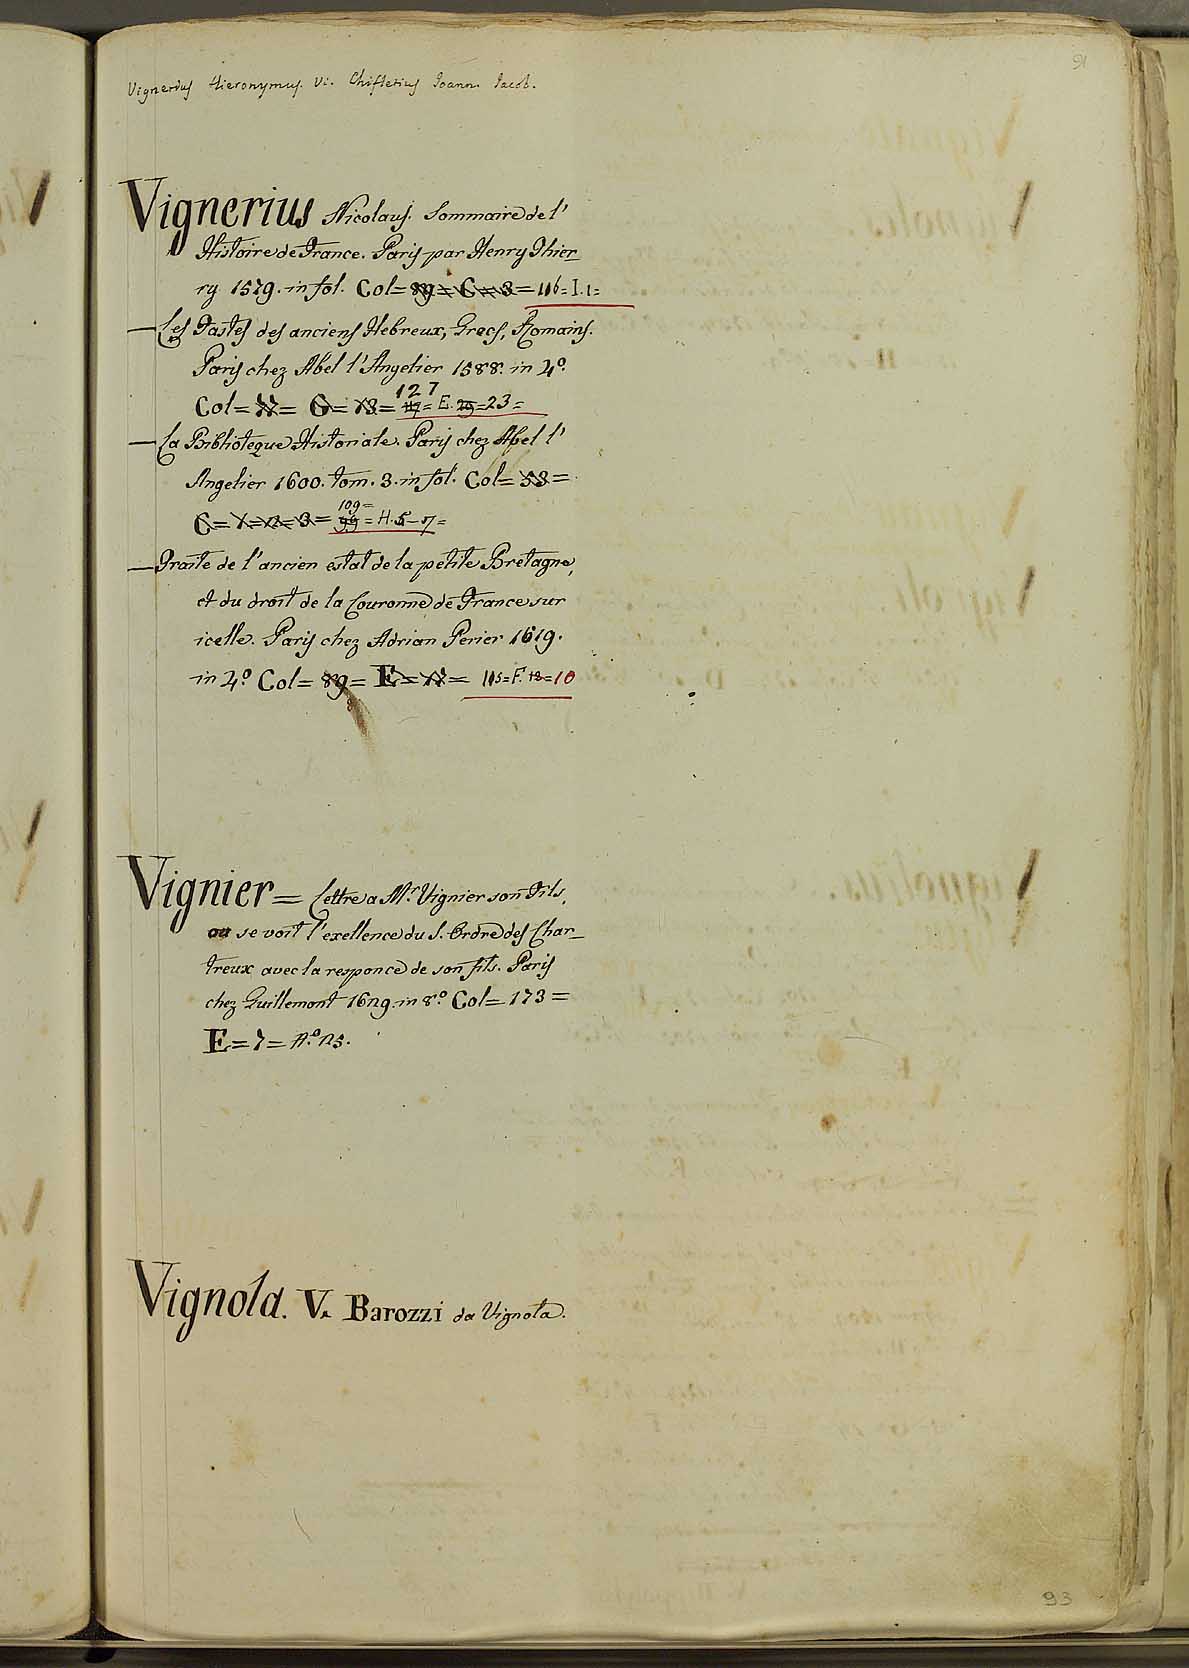 91
Vignerius Hieronymus. Vi. Chifletius Joann. Jacob.
Vignerius Nicolaus. Sommaire de l'
Histoire de France. Paris par Henry Thier_
ry. 1579. in fol. Col= 89= C= 3= 116= I. 1=
— Les Fastes des anciens Hebreux, Grecs, Romains.
Paris chez Abel l'Angelier 1588. in 4.º
127
Col= = G= 13= = E. 29=23=
— La Biblioteque Historiale. Paris chez Abel l'
Angelier 1600. tom. 3. in fol. Col= 53=
109=
C= 1=2=3= 99= H. 5-7=
— Traite de l'ancien estat de la petite Bretagne,
et du droit de la Couronne de France sur
icelle. Paris chez Adrian Perier 1619.
in 4.º Col= 89= E= = 115= F. 12=10
Vignier= Lettre a Mr. Vignier son Fils,
ou se voit l'exellence du S. Ordre des Char_
treux avec la responce de son fils. Paris
chez Guillemont 1629. in 8.º Col= 173=
E= 7= n.º 25.
Vignola. V. Barozzi da Vignola.
93